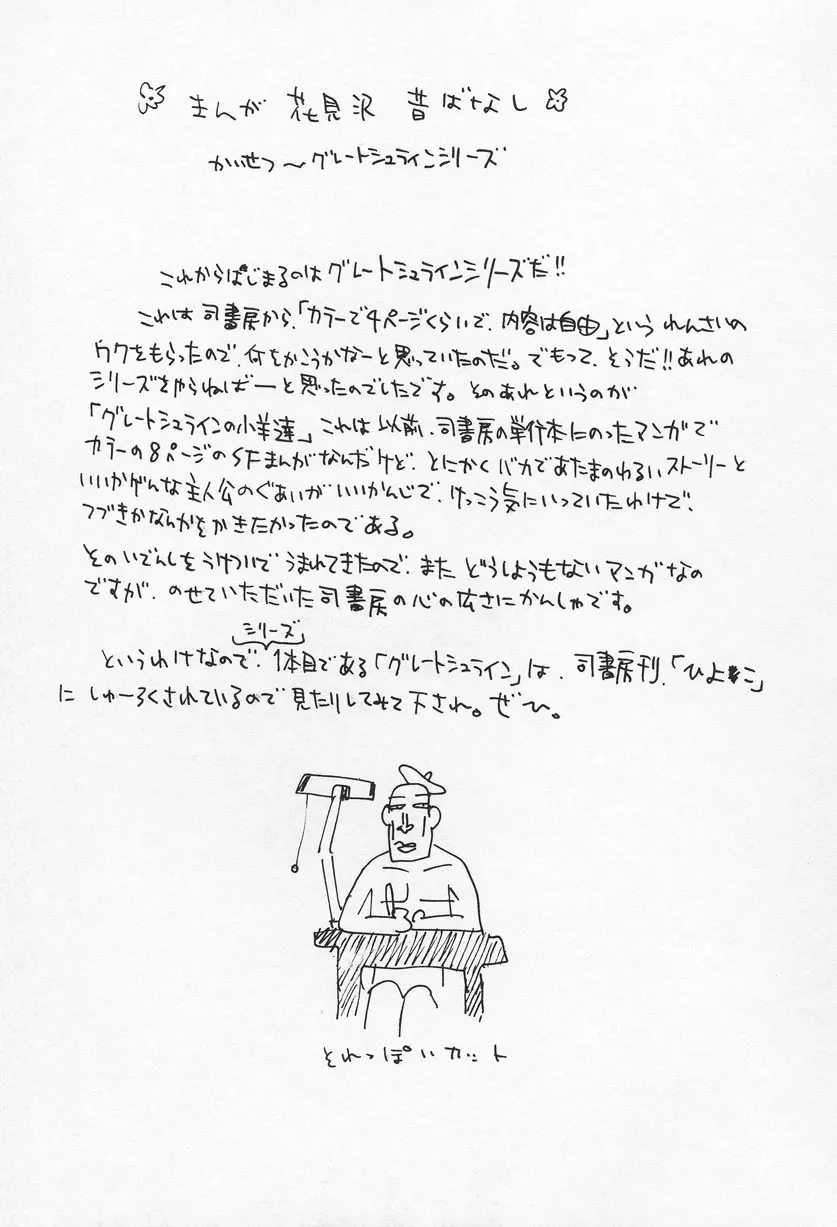 まんが 花見沢 昔ばなし
かいせつ～グレートシュラインシリーズ
これからはじまるのはグレートシュラインシリーズだ!!
これは司書房から、「カラーで4ページくらいで、内容は自由」というれんさいの
ワクをもらったので、何をかこうかなーと思っていたのだ。でもって、そうだ!!あれの
シリーズをやらねばーと思ったのでしたです。そのあれというのが
「グレートシュラインの小羊達」これは以前、司書房の単行本にのったマンガで
カラーの8ページのSFまんがなんだけど、とにかくバカであたまのわるいストーリーと
いいかげんな主人公のぐあいがいいかんじで、けっこう気にいっていたわけで、
つづきかなんかをかきたかったのである。
そのいでんしをうけついでうまれてきたので、また どうしようもないマンガなの
ですが、のせていただいた司書房の心の広さにかんしゃです。
シリーズ
というわけなので、1体目である「グレートシュライン」は、司書房刊、「ひよこ」
に しゅーろくされているので見たりしてみて下され。ぜひ。
それっぽいカット